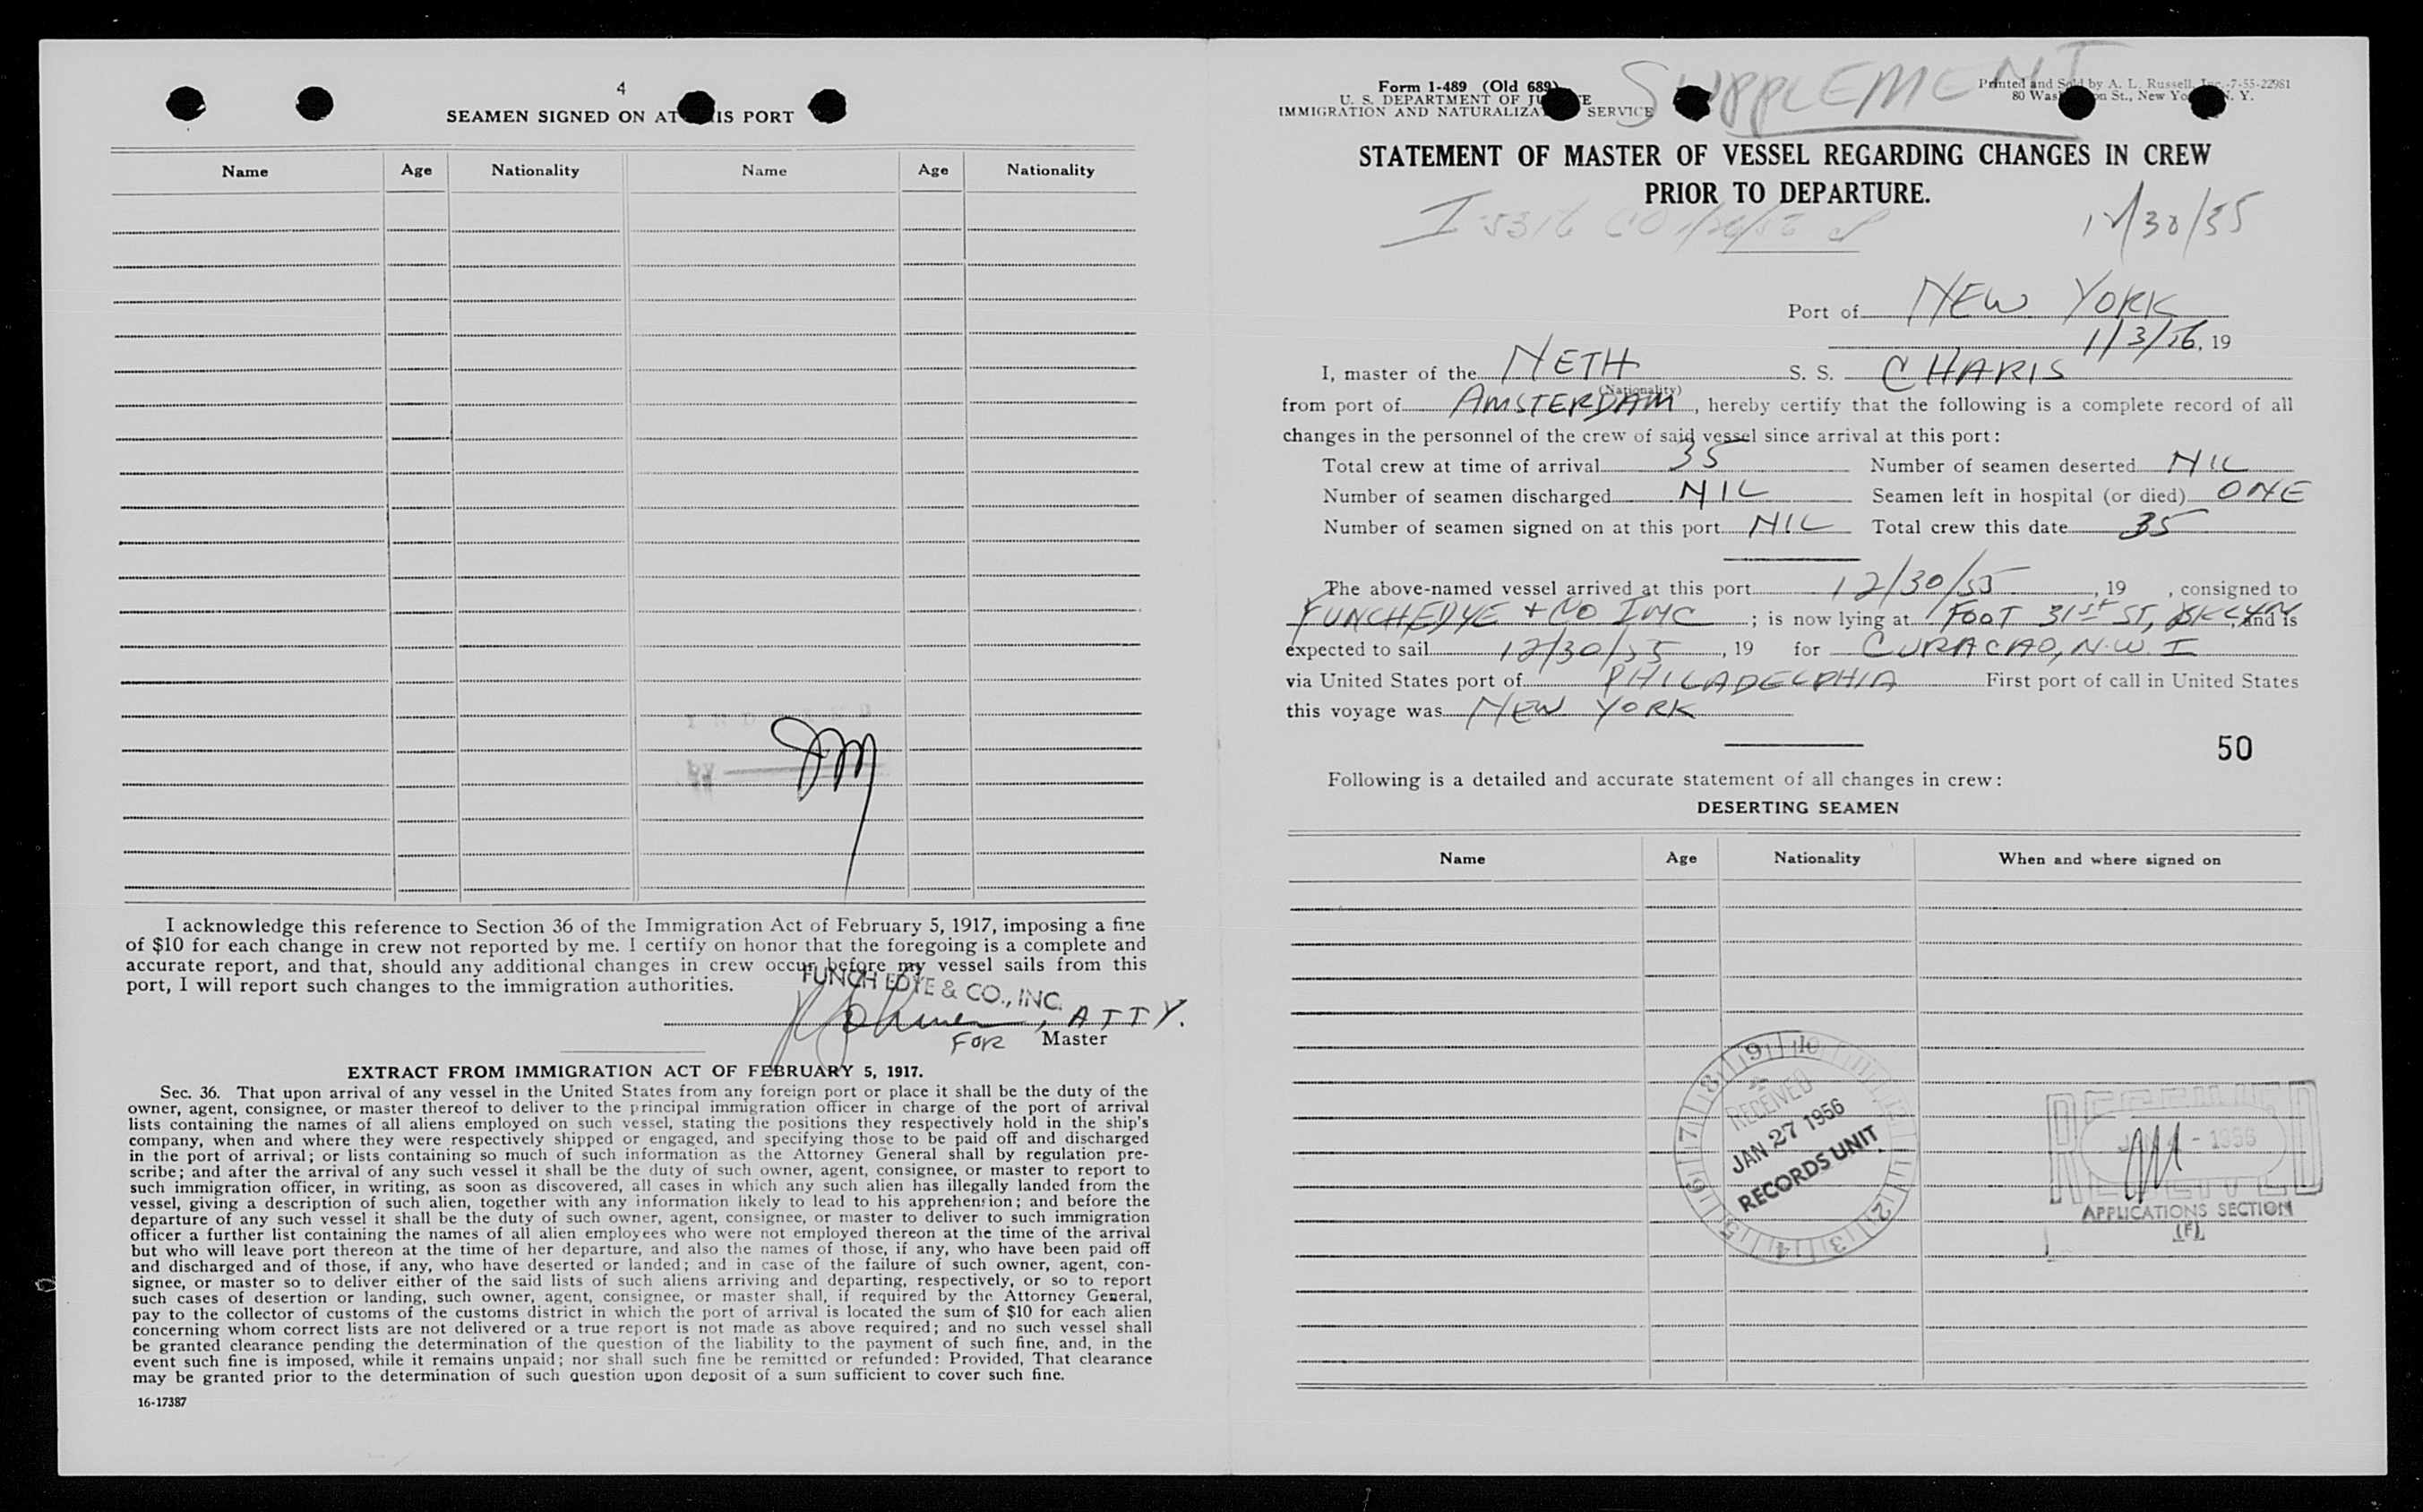 4
SEAMEN SIGNED ON AT IS PORT
Name Age Nationality Name Age Nationality
I acknowledge this reference to Section 36 of the Immigration Act of February 5, 1917, imposing a fine
of $10 for each change in crew not reported by me. I certify on honor that the foregoing is a complete and
accurate report, and that, should any additional changes in crew occur before my vessel sails from this
port, I will report such changes to the immigration authorities.
FUNCH EDYE & CO., INC.
, ATTY.
FOR Master
EXTRACT FROM IMMIGRATION ACT OF FEBRUARY 5, 1917.
Sec. 36. That upon arrival of any vessel in the United States from any foreign port or place it shall be the duty of the
owner, agent, consignee, or master thereof to deliver to the principal immigration officer in charge of the port of arrival
lists containing the names of all aliens employed on such vessel, stating the positions they respectively hold in the ship's
company, when and where they were respectively shipped or engaged, and specifying those to be paid off and discharged
in the port of arrival; or lists containing so much of such information as the Attorney General shall by regulation pre-
scribe; and after the arrival of any such vessel it shall be the duty of such owner, agent, consignee, or master to report to
such immigration officer, in writing, as soon as discovered, all cases in which any such alien has illegally landed from the
vessel, giving a description of such alien, together with any information likely to lead to his apprehension; and before the
departure of any such vessel it shall be the duty of such owner, agent, consignee, or master to deliver to such immigration
officer a further list containing the names of all alien employees who were not employed thereon at the time of the arrival
but who will leave port thereon at the time of her departure, and also the names of those, if any, who have been paid off
and discharged and of those, if any, who have deserted or landed; and in case of the failure of such owner, agent, con-
signee, or master so to deliver either of the said lists of such aliens arriving and departing, respectively, or so to report
such cases of desertion or landing, such owner, agent, consignee, or master shall, if required by the Attorney General,
pay to the collector of customs of the customs district in which the port of arrival is located the sum of $10 for each alien
concerning whom correct lists are not delivered or a true report is not made as above required; and no such vessel shall
be granted clearance pending the determination of the question of the liability to the payment of such fine, and, in the
event such fine is imposed, while it remains unpaid; nor shall such fine be remitted or refunded: Provided, That clearance
may be granted prior to the determination of such question upon deposit of a sum sufficient to cover such fine.
16-17387
SUPPLEMENT
Form I-489 (Old 689)
U. S. DEPARTMENT OF JU E
IMMIGRATION AND NATURALIZA SERVICE
Printed and Sold by A. L. Russell, Inc.-7-55-22981
80 Was n St., New Yo N. Y.
STATEMENT OF MASTER OF VESSEL REGARDING CHANGES IN CREW
PRIOR TO DEPARTURE.
12/30/55
Port of NEW YORK
1/3/56, 19
I, master of the NETH S. S. CHARIS
(Nationality)
from port of AMSTERDAM, hereby certify that the following is a complete record of all
changes in the personnel of the crew of said vessel since arrival at this port:
Total crew at time of arrival 35 Number of seamen deserted NIL
Number of seamen discharged NIL Seamen left in hospital (or died) ONE
Number of seamen signed on at this port NIL Total crew this date 35
The above-named vessel arrived at this port 12/30/55, 19 , consigned to
FUNCH EDYE + CO INC; is now lying at FOOT 31st ST, BKLYN, and is
expected to sail 12/30/55, 19 for CURACAO, N.W.I
via United States port of PHILADELPHIA First port of call in United States
this voyage was NEW YORK
50
Following is a detailed and accurate statement of all changes in crew:
DESERTING SEAMEN
Name Age Nationality When and where signed on
RECEIVED
JAN 27 1956
RECORDS UNIT
RECEIVED
1956
APPLICATIONS SECTION
(F)